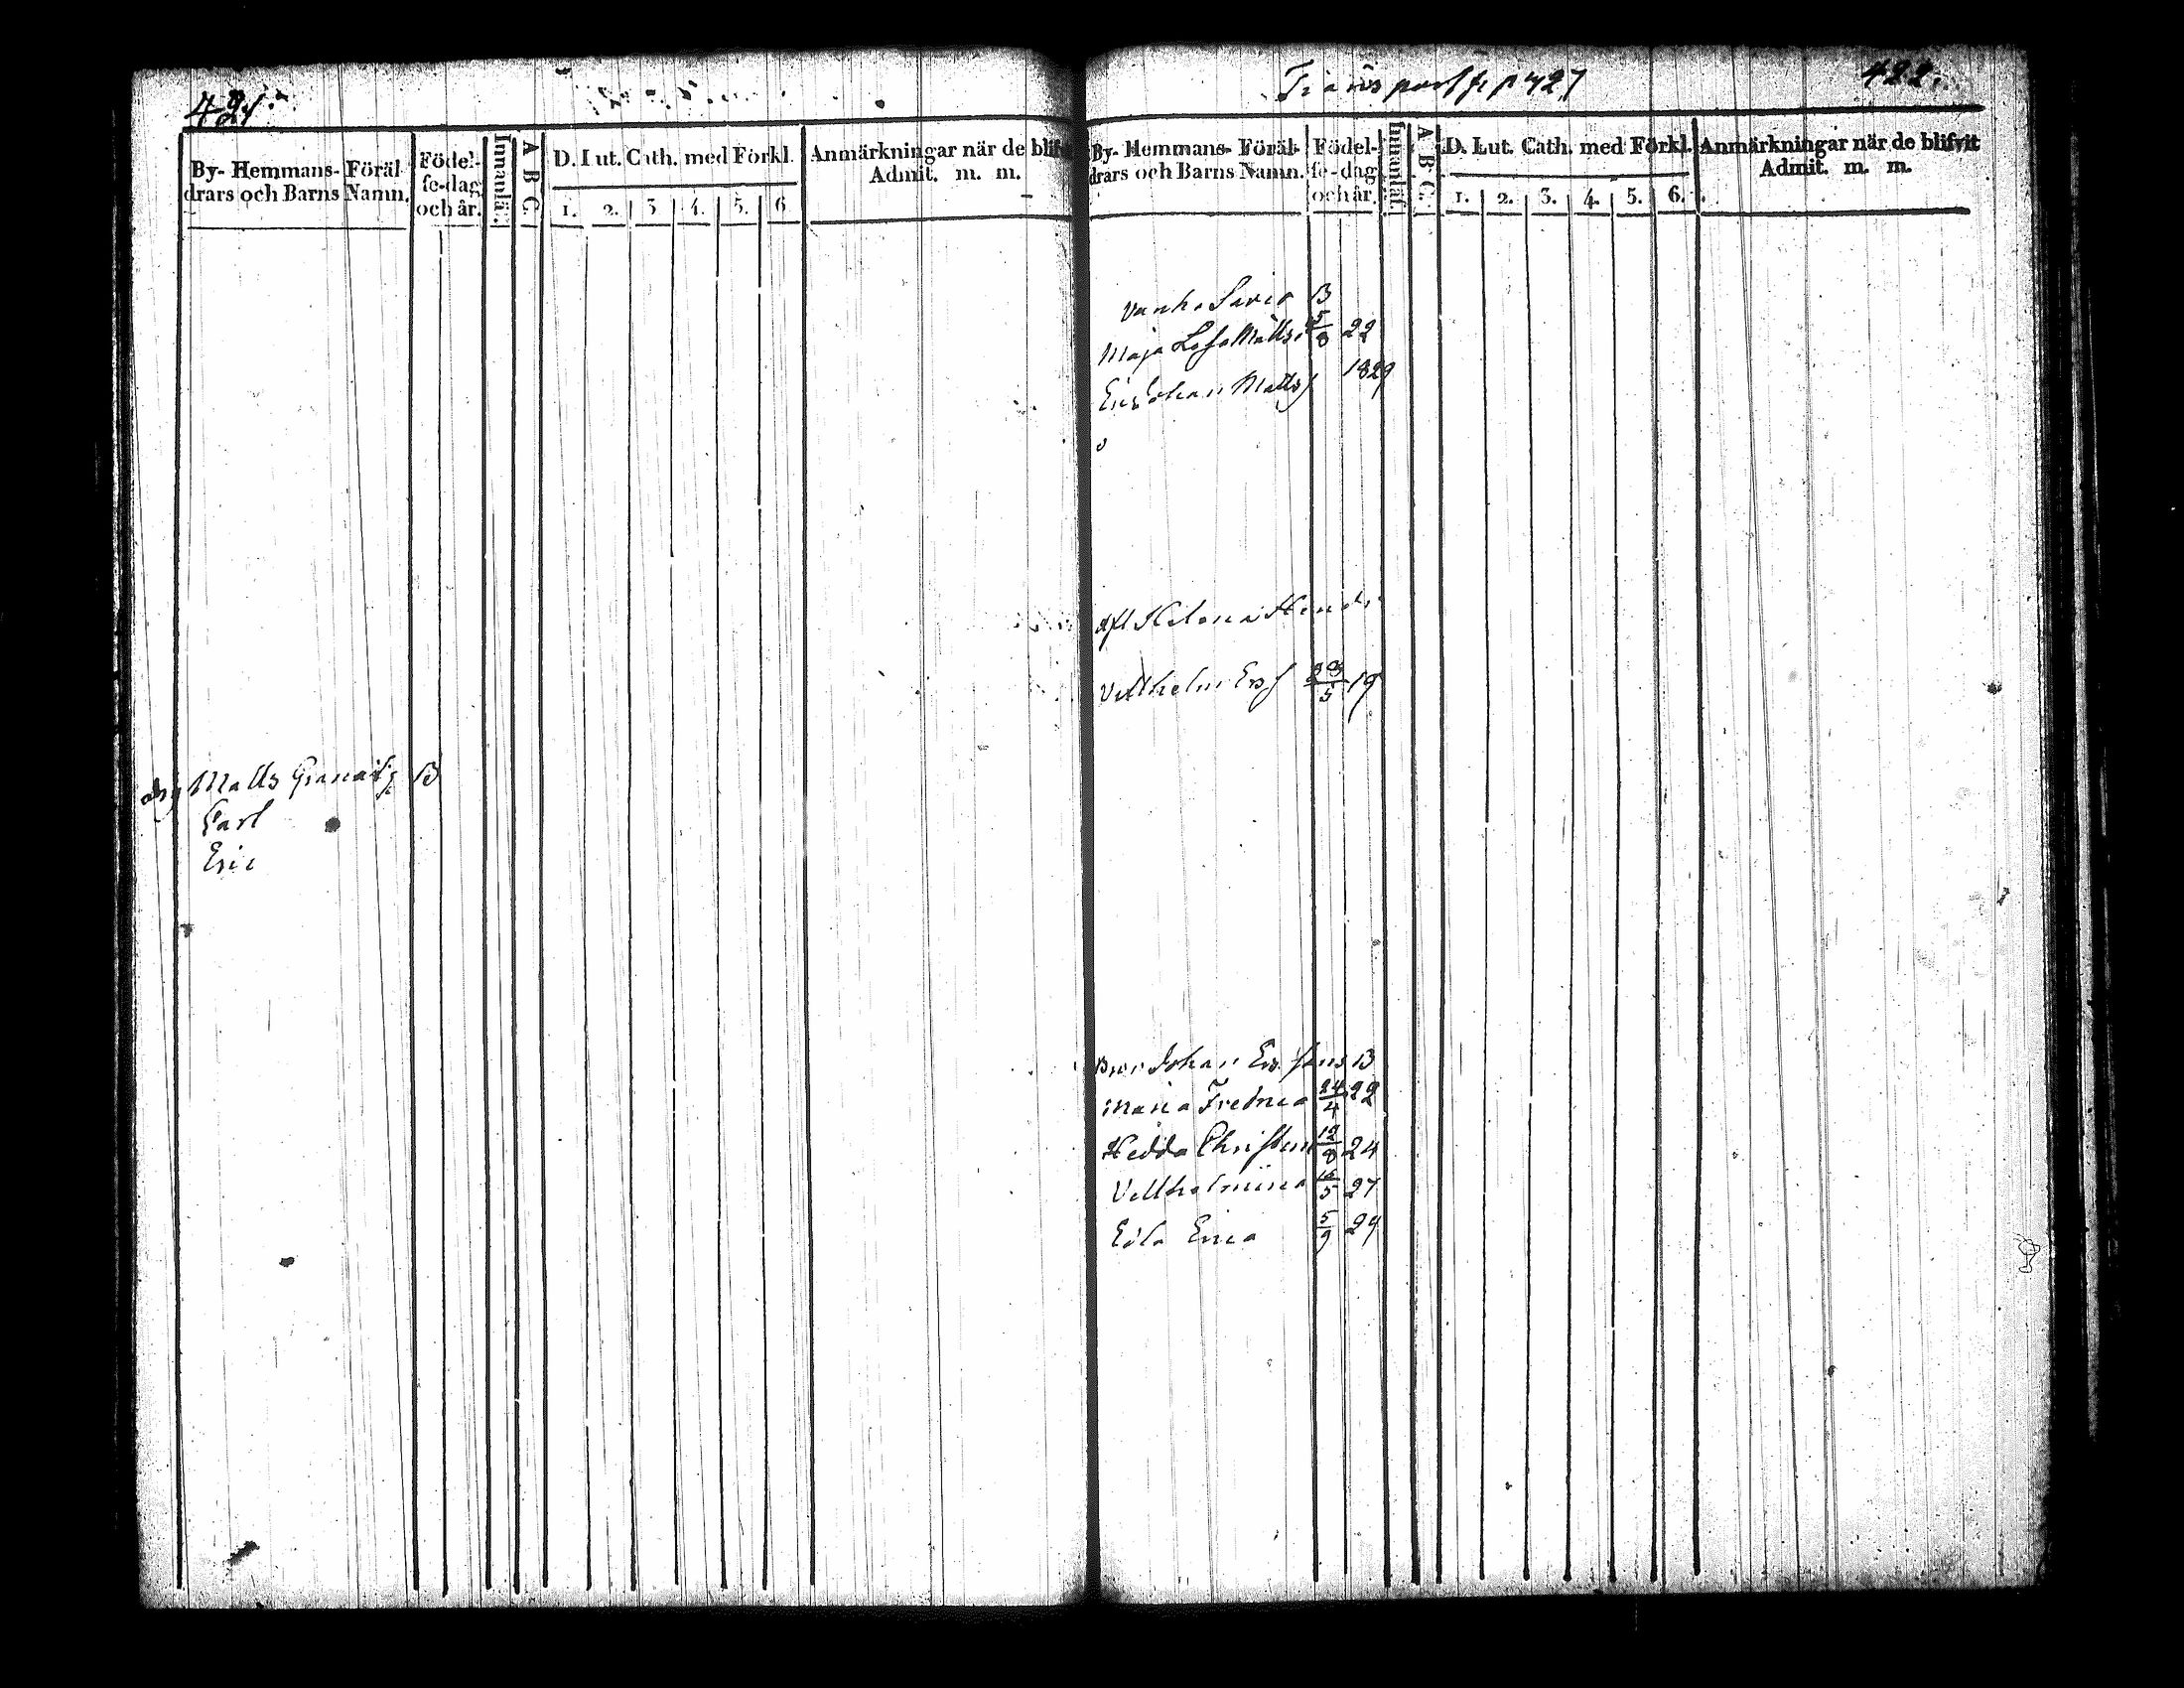 421.
By- Hemmans- Föräl-
drars och Barns Namn.
Födel-
se-dag
och år.
Innanläs.
A B C
D. Lut. Cath. med Förkl.
1. 2. 3 4. 5. 6
Anmärkningar när de blifv
Admit. m. m.
Matts B
Carl
Eric
Transport fr p 427
422.
By- Hemmans- Föräl-
drars och Barns Namn.
Födel-
se-dag
och år.
Innanläs.
A B C.
D. Lut. Cath. med Förkl.
1. 2. 3. 4. 5. 6.
Anmärkningar när de blifvit
Admit. m. m.
B
Maja Lisa Matts 5/8 22
Eric Johan Matts 1829
Helena
Villhelm Ers 23/5 19
Johan Ers sons B
Maria Fredrica 24/4 22
Hedda Christina 12/8 24
Villhelmiina 16/5 27
Eva Erica 5/9 29